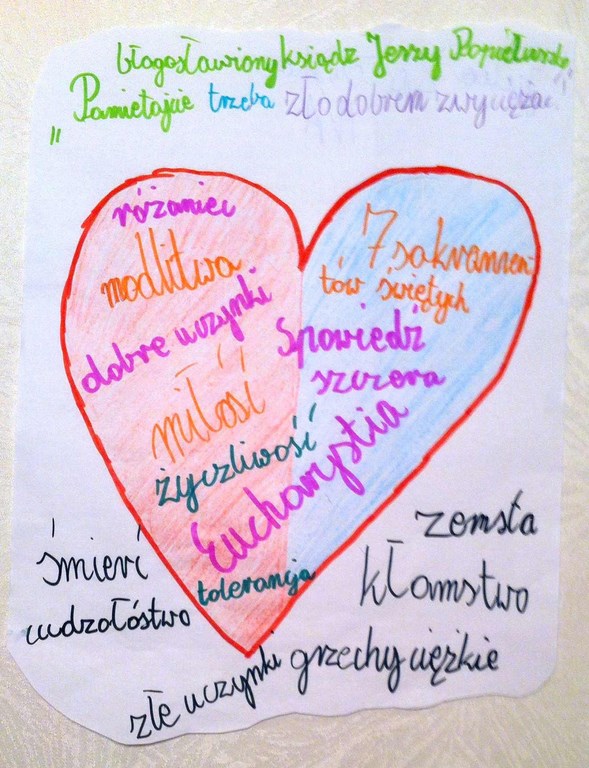 błogosławiony ksiądz Jerzy Popiełuszko
"Pamiętajcie trzeba zło dobrem zwyciężać"
różaniec
modlitwa
dobre uczynki
miłość
życzliwość
7 sakramen
tów świętych
Spowiedź
szczera
Eucharystia
tolerancja
śmierć
cudzołóstwo
złe uczynki
zemsta
kłamstwo
grzechy ciężkie